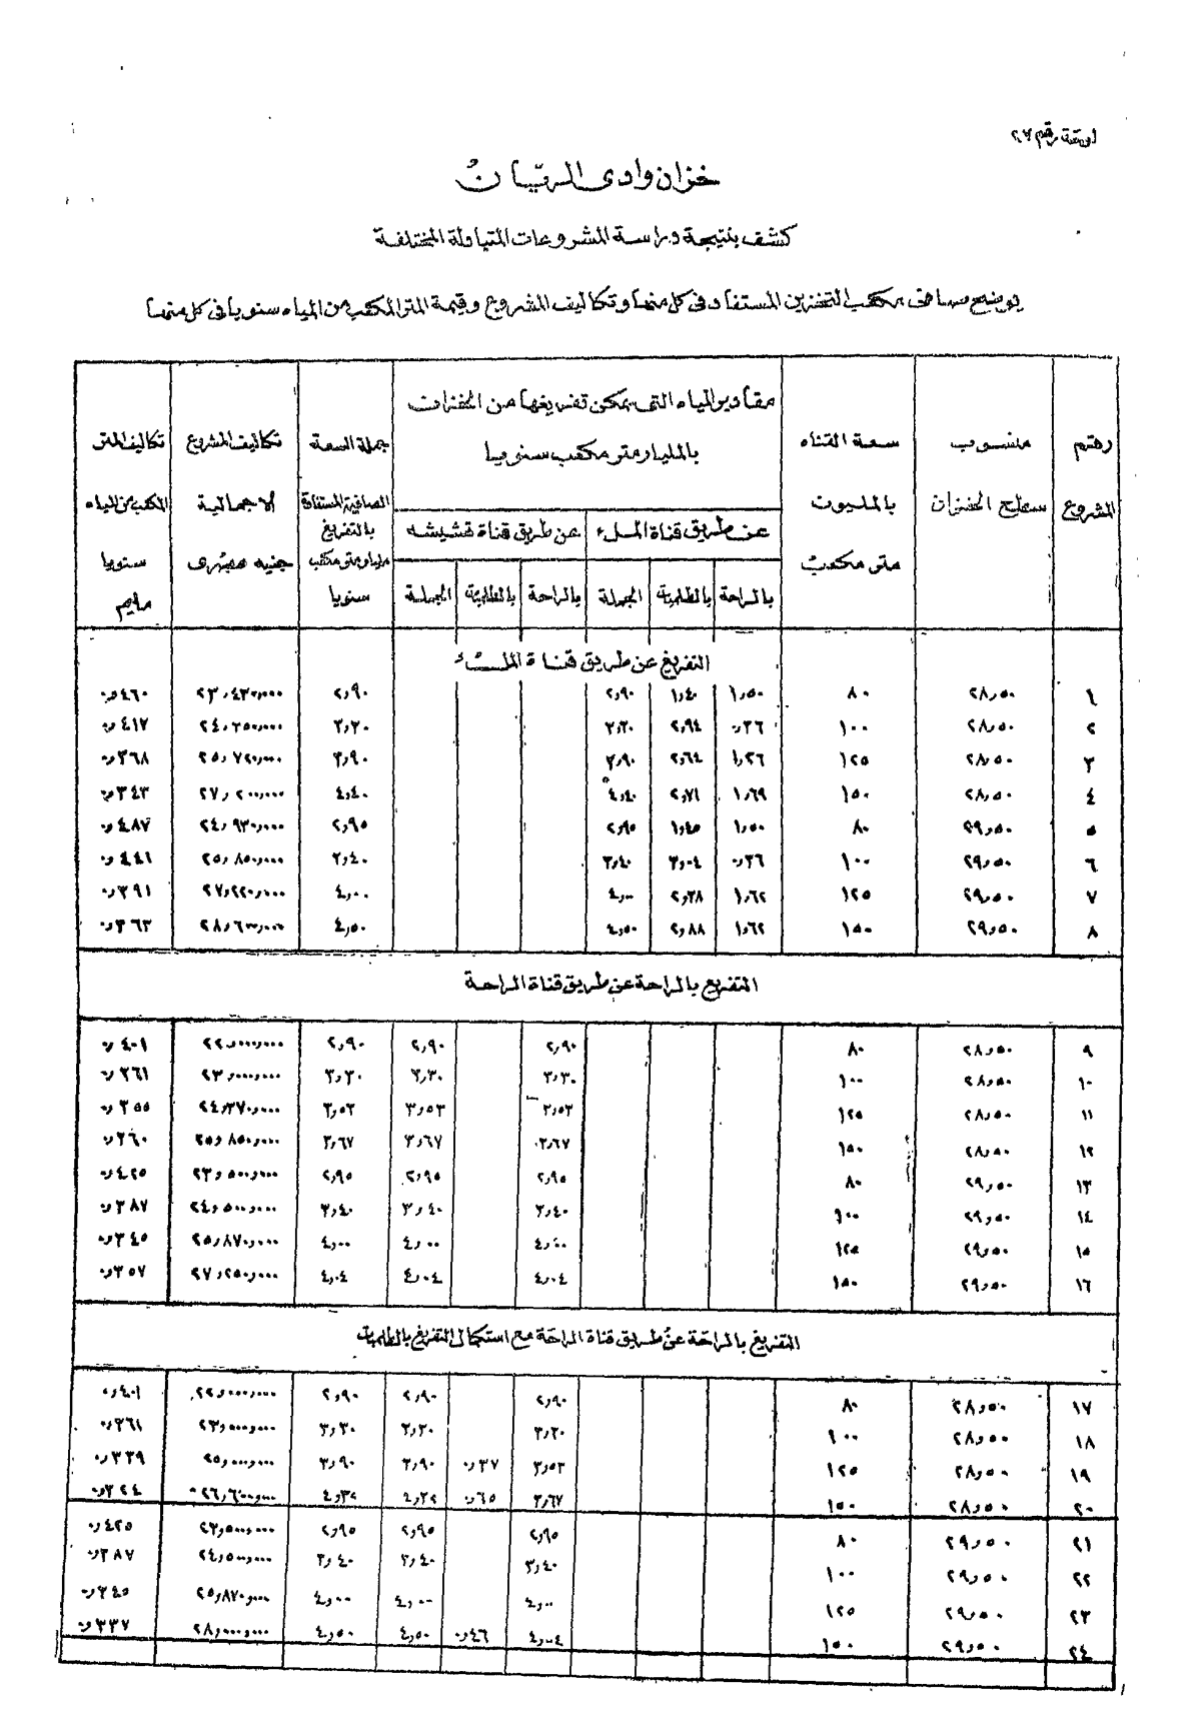 رقم ٢٧
خزان وادى الريّان
كشف بنتيجة دراسة المشروعات المتبادلة المختلفة
يوضح صافى مكعب التخزين المستفاد فى كل منها وتكاليف المشروع وقيمة المتر المكعب من المياه سنويا فى كل منها
رقم المشروع | منسوب سطح الخزان | سعة القناه بالمليون متر مكعب | مقادير المياه التى يمكن تفريغها من الخزان بالمليار متر مكعب سنويا | جملة السعة الصافية المستفادة بالتفريغ مليار متر مكعب سنويا | تكاليف المشروع الاجمالية جنيه مصرى | تكاليف المتر المكعب من المياه سنويا مليم
عن طريق قناة الملء | عن طريق قناة قشيشه
بالراحة | بالطلمبة | الجملة | بالراحة | بالطلمبة | الجملة
التفريغ عن طريق قناة الملء
١ | ٢٨,٥٠ | ٨٠ | ١,٥٠ | ١,٤٠ | ٢,٩٠ | ٢,٩٠ | ٢٣,٤٣٠,٠٠٠ | ٠,٤٦٠
٢ | ٢٨,٥٠ | ١٠٠ | ٠,٣٦ | ٢,٩٤ | ٣,٣٠ | ٣,٣٠ | ٢٤,٣٥٠,٠٠٠ | ٠,٤١٧
٣ | ٢٨,٥٠ | ١٢٥ | ١,٢٦ | ٢,٦٤ | ٣,٩٠ | ٣,٩٠ | ٢٥,٧٢٠,٠٠٠ | ٠,٣٦٨
٤ | ٢٨,٥٠ | ١٥٠ | ١,٦٩ | ٢,٧١ | ٤,٤٠ | ٤,٤٠ | ٢٧,٢٠٠,٠٠٠ | ٠,٣٤٣
٥ | ٢٩,٥٠ | ٨٠ | ١,٥٠ | ١,٤٥ | ٢,٩٥ | ٢,٩٥ | ٢٤,٩٣٠,٠٠٠ | ٠,٤٨٧
٦ | ٢٩,٥٠ | ١٠٠ | ٠,٣٦ | ٣,٠٤ | ٣,٤٠ | ٣,٤٠ | ٢٥,٨٥٠,٠٠٠ | ٠,٤٤١
٧ | ٢٩,٥٠ | ١٢٥ | ١,٦٢ | ٢,٣٨ | ٤,٠٠ | ٤,٠٠ | ٢٧,٢٢٠,٠٠٠ | ٠,٣٩١
٨ | ٢٩,٥٠ | ١٥٠ | ١,٦٢ | ٢,٨٨ | ٤,٥٠ | ٤,٥٠ | ٢٨,٦٠٠,٠٠٠ | ٠,٣٦٣
التفريغ بالراحة عن طريق قناة الراحة
٩ | ٢٨,٥٠ | ٨٠ | ٢,٩٠ | ٢,٩٠ | ٢,٩٠ | ٢٢,٠٠٠,٠٠٠ | ٠,٤٠١
١٠ | ٢٨,٥٠ | ١٠٠ | ٣,٣٠ | ٣,٣٠ | ٣,٣٠ | ٢٣,٠٠٠,٠٠٠ | ٠,٣٦١
١١ | ٢٨,٥٠ | ١٢٥ | ٣,٥٣ | ٣,٥٣ | ٣,٥٣ | ٢٤,٣٧٠,٠٠٠ | ٠,٣٥٥
١٢ | ٢٨,٥٠ | ١٥٠ | ٣,٦٧ | ٣,٦٧ | ٣,٦٧ | ٢٥,٨٥٠,٠٠٠ | ٠,٣٦٠
١٣ | ٢٩,٥٠ | ٨٠ | ٢,٩٥ | ٢,٩٥ | ٢,٩٥ | ٢٣,٥٠٠,٠٠٠ | ٠,٤٢٥
١٤ | ٢٩,٥٠ | ١٠٠ | ٣,٤٠ | ٣,٤٠ | ٣,٤٠ | ٢٤,٥٠٠,٠٠٠ | ٠,٣٨٧
١٥ | ٢٩,٥٠ | ١٢٥ | ٤,٠٠ | ٤,٠٠ | ٤,٠٠ | ٢٥,٨٧٠,٠٠٠ | ٠,٣٤٥
١٦ | ٢٩,٥٠ | ١٥٠ | ٤,٠٤ | ٤,٠٤ | ٤,٠٤ | ٢٧,٢٥٠,٠٠٠ | ٠,٣٥٧
التفريغ بالراحة عن طريق قناة الراحة مع استكمال التفريغ بالطلمبات
١٧ | ٢٨,٥٠ | ٨٠ | ٢,٩٠ | ٢,٩٠ | ٢,٩٠ | ٢٢,٠٠٠,٠٠٠ | ٠,٤٠١
١٨ | ٢٨,٥٠ | ١٠٠ | ٣,٣٠ | ٣,٣٠ | ٣,٣٠ | ٢٣,٠٠٠,٠٠٠ | ٠,٣٦١
١٩ | ٢٨,٥٠ | ١٢٥ | ٣,٥٣ | ٠,٣٧ | ٣,٩٠ | ٣,٩٠ | ٢٥,٠٠٠,٠٠٠ | ٠,٣٣٩
٢٠ | ٢٨,٥٠ | ١٥٠ | ٣,٦٧ | ٠,٦٥ | ٤,٣٢ | ٤,٣٢ | ٢٦,٦٠٠,٠٠٠ | ٠,٣٢٤
٢١ | ٢٩,٥٠ | ٨٠ | ٢,٩٥ | ٢,٩٥ | ٢,٩٥ | ٢٣,٥٠٠,٠٠٠ | ٠,٤٢٥
٢٢ | ٢٩,٥٠ | ١٠٠ | ٣,٤٠ | ٣,٤٠ | ٣,٤٠ | ٢٤,٥٠٠,٠٠٠ | ٠,٣٨٧
٢٣ | ٢٩,٥٠ | ١٢٥ | ٤,٠٠ | ٤,٠٠ | ٤,٠٠ | ٢٥,٨٧٠,٠٠٠ | ٠,٣٤٥
٢٤ | ٢٩,٥٠ | ١٥٠ | ٤,٠٤ | ٠,٤٦ | ٤,٥٠ | ٤,٥٠ | ٢٨,٠٠٠,٠٠٠ | ٠,٣٣٧